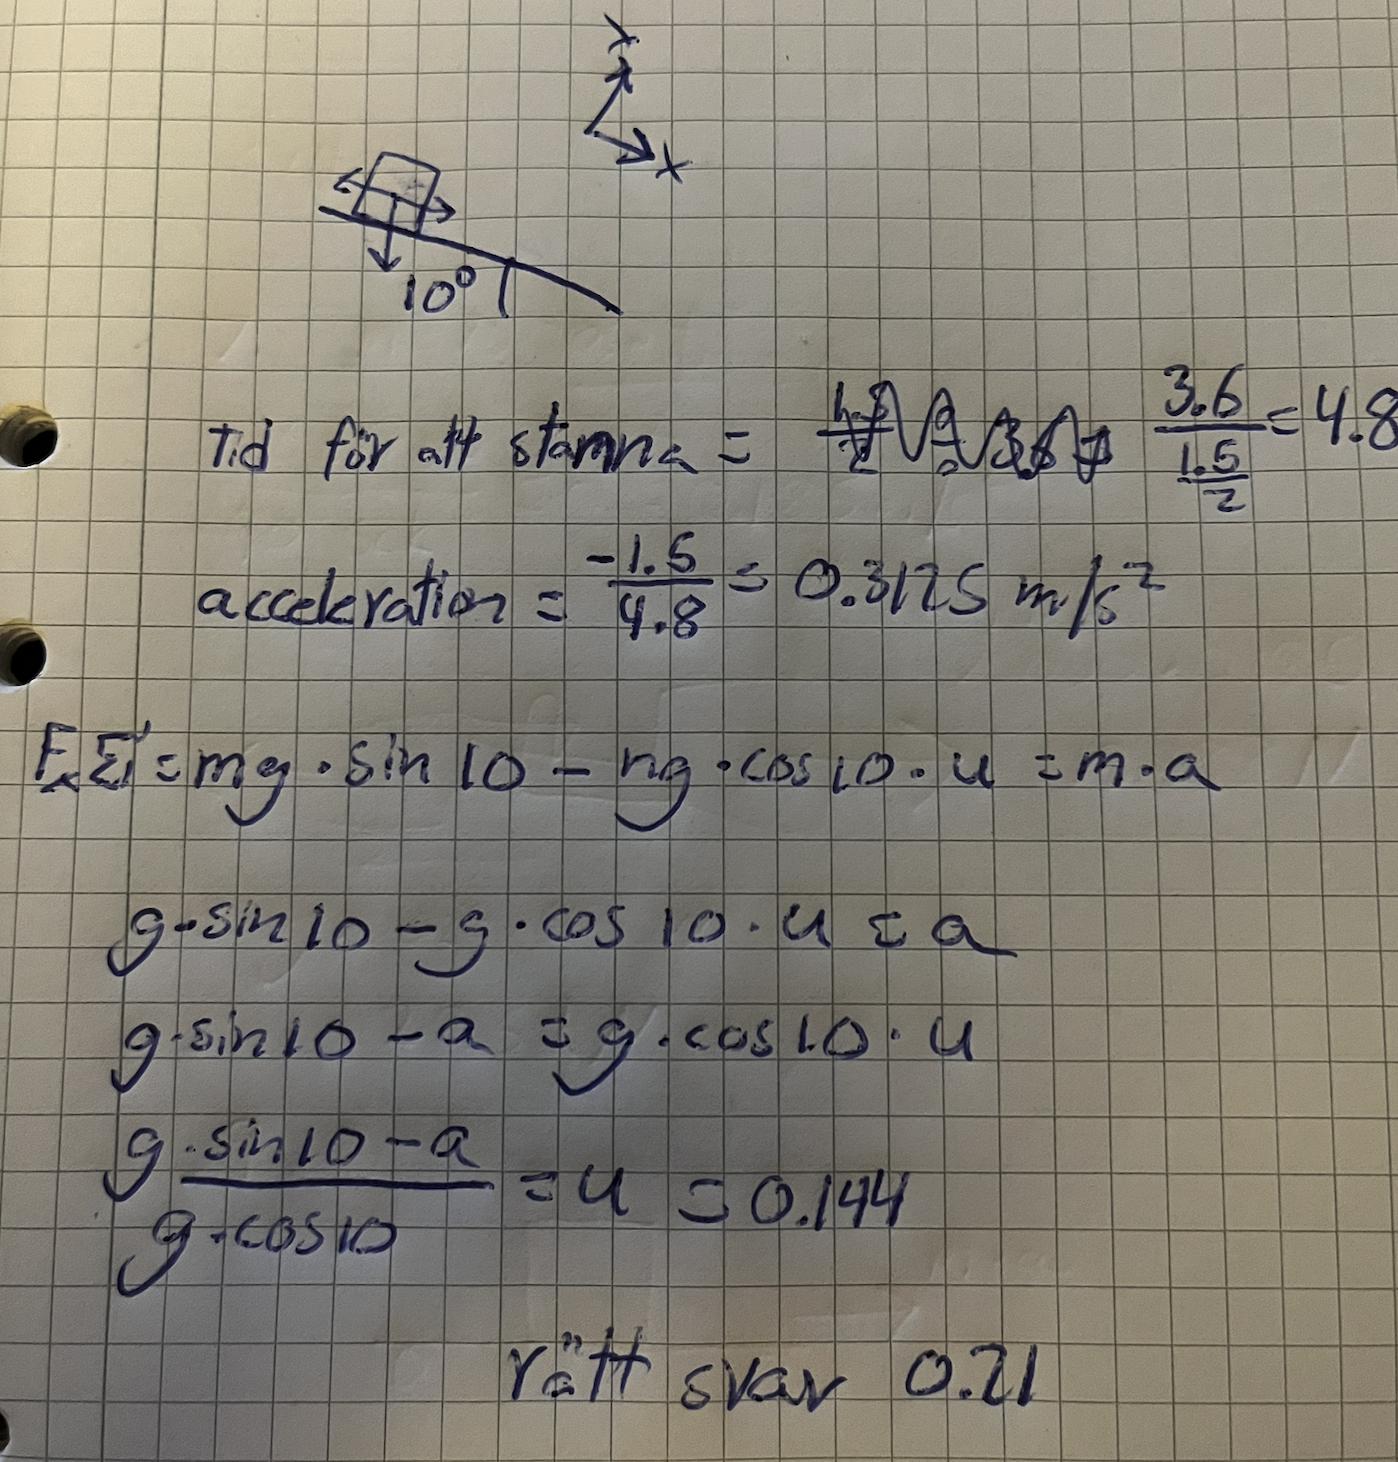 Y
X
10°
Tid för att stamna = 3.6/(1.5/2) = 4.8
acceleration = -1.5/4.8 = 0.3125 m/s²
mg · sin 10 - mg · cos 10 · u = m · a
g · sin 10 - g · cos 10 · u = a
g · sin 10 - a = g · cos 10 · u
(g · sin 10 - a)/(g · cos 10) = u = 0.144
rätt svar 0.21